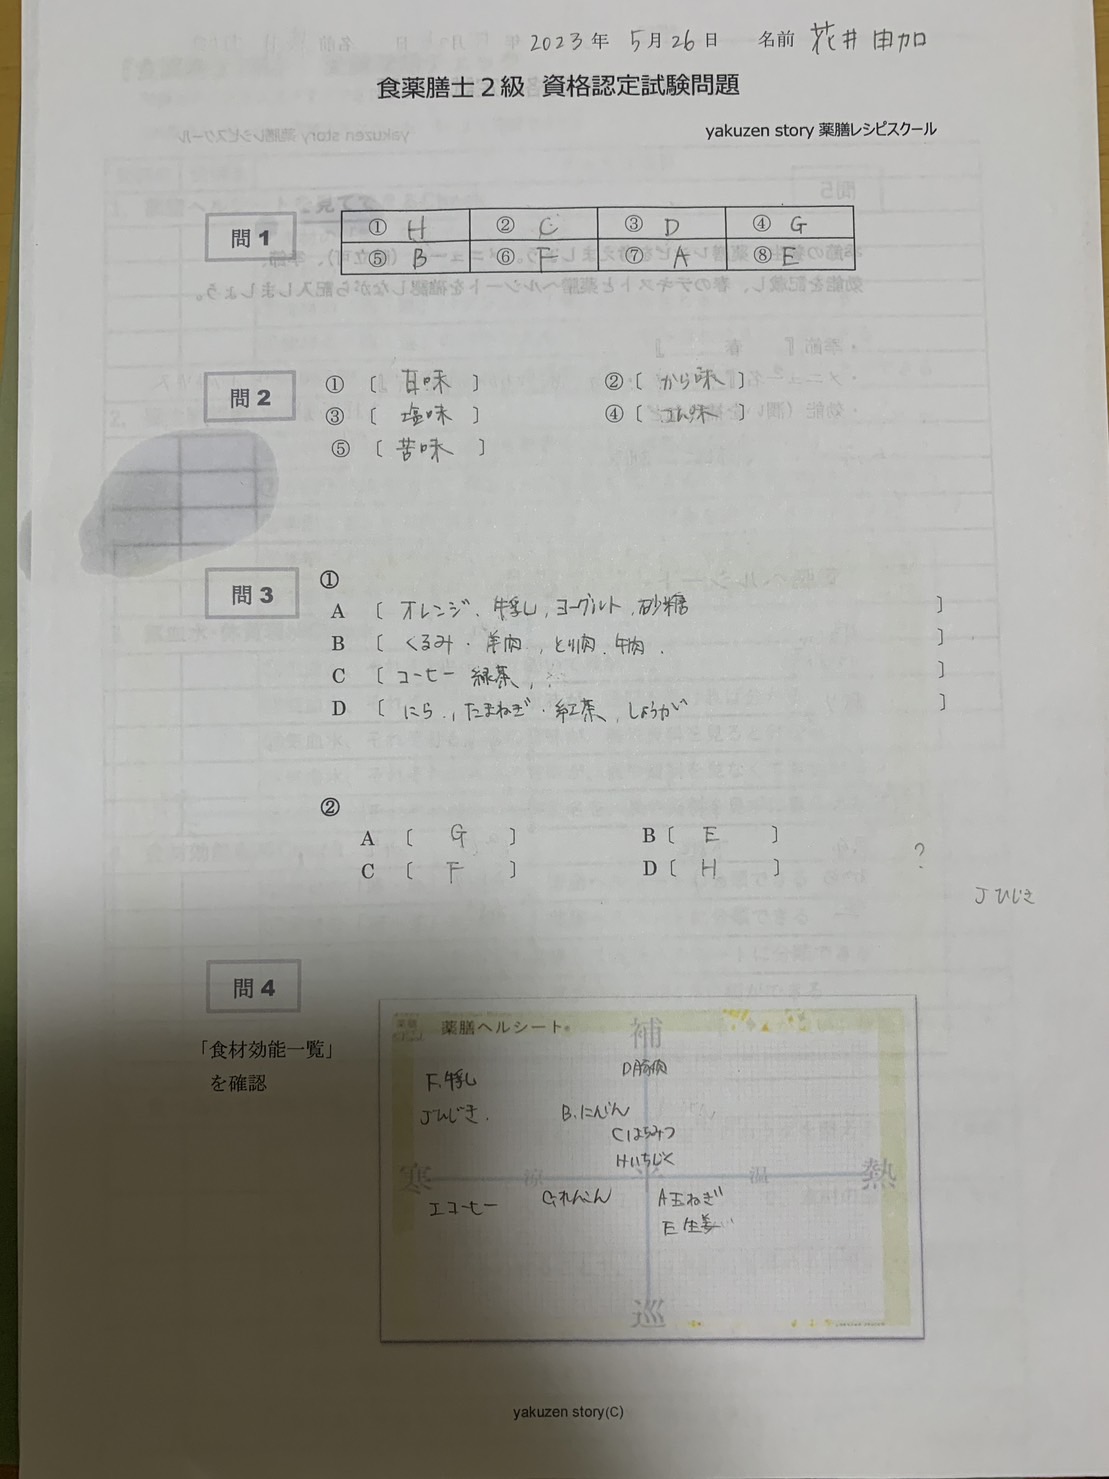 2023年 5月26日 名前 花井 由加
食薬膳士2級 資格認定試験問題
yakuzen story 薬膳レシピスクール
問1
① H ② C ③ D ④ G
⑤ B ⑥ F ⑦ A ⑧ E
問2
① 〔 甘味 〕 ②〔 から味 〕
③ 〔 塩味 〕 ④〔 味 〕
⑤ 〔 苦味 〕
問3
①
A 〔 オレンジ、牛乳、ヨーグルト、砂糖 〕
B 〔 くるみ・羊肉、とり肉、牛肉、 〕
C 〔 コーヒー 緑茶、 〕
D 〔 にら、たまねぎ・紅茶、しょうが 〕
②
A 〔 G 〕 B〔 E 〕
C 〔 F 〕 D〔 H 〕
?
J ひじき
問4
「食材効能一覧」
を確認
薬膳ヘルシート
補
D豚肉
F.牛乳
Jひじき.
B.にんじん
Cはちみつ
Hいちじく
寒 涼 平 温 熱
I コーヒー
G.れんこん
A玉ねぎ
E 生姜
巡
yakuzen story(C)